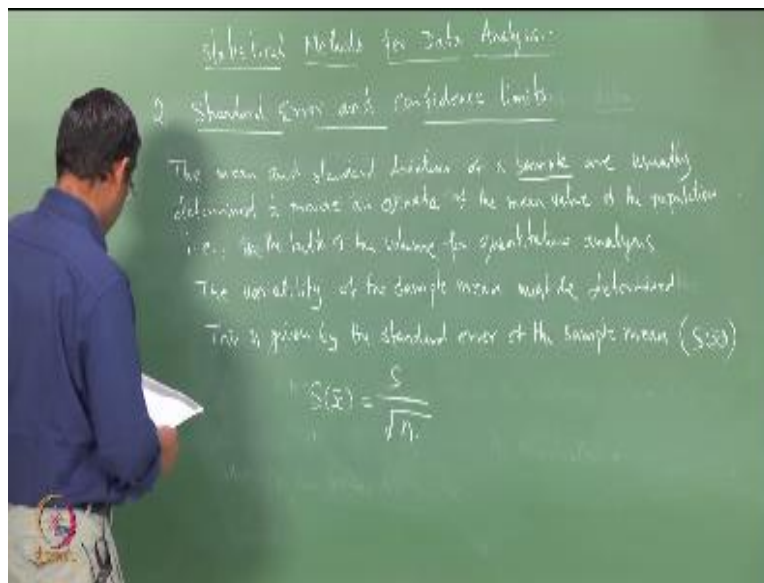 Statistical Methods for Data Analysis:-
2 Standard Error and confidence limits
The mean and standard deviation of a sample are usually
determined to provide an estimate of the mean value of the population
i.e., in the bulk of the volume for quantitative analysis
The variability of the sample mean must be determined
This is given by the standard error of the sample mean (S(x̄))
S(x̄) = S / √n